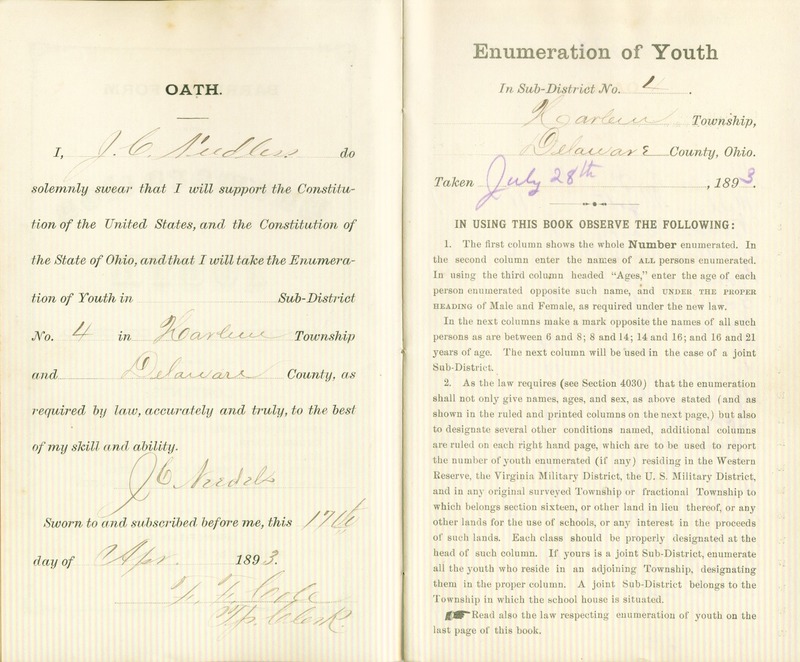 OATH.
I, J. C. Needless do
solemnly swear that I will support the Constitu-
tion of the United States, and the Constitution of
the State of Ohio, and that I will take the Enumera-
tion of Youth in Sub-District
No. 4 in Harlem Township
and Delaware County, as
required by law, accurately and truly, to the best
of my skill and ability.
J C Needels
Sworn to and subscribed before me, this 17th
day of Apr. 1893.
Tp. Clerk.
Enumeration of Youth
In Sub-District No. 4.
Harlem Township,
Delaware County, Ohio.
Taken July 28th, 1893.
IN USING THIS BOOK OBSERVE THE FOLLOWING:
1. The first column shows the whole Number enumerated. In
the second column enter the names of ALL persons enumerated.
In using the third column headed "Ages," enter the age of each
person enumerated opposite such name, and UNDER THE PROPER
HEADING of Male and Female, as required under the new law.
In the next columns make a mark opposite the names of all such
persons as are between 6 and 8; 8 and 14; 14 and 16; and 16 and 21
years of age. The next column will be used in the case of a joint
Sub-District.
2. As the law requires (see Section 4030) that the enumeration
shall not only give names, ages, and sex, as above stated (and as
shown in the ruled and printed columns on the next page,) but also
to designate several other conditions named, additional columns
are ruled on each right hand page, which are to be used to report
the number of youth enumerated (if any) residing in the Western
Reserve, the Virginia Military District, the U. S. Military District,
and in any original surveyed Township or fractional Township to
which belongs section sixteen, or other land in lieu thereof, or any
other lands for the use of schools, or any interest in the proceeds
of such lands. Each class should be properly designated at the
head of such column. If yours is a joint Sub-District, enumerate
all the youth who reside in an adjoining Township, designating
them in the proper column. A joint Sub-District belongs to the
Township in which the school house is situated.
Read also the law respecting enumeration of youth on the
last page of this book.